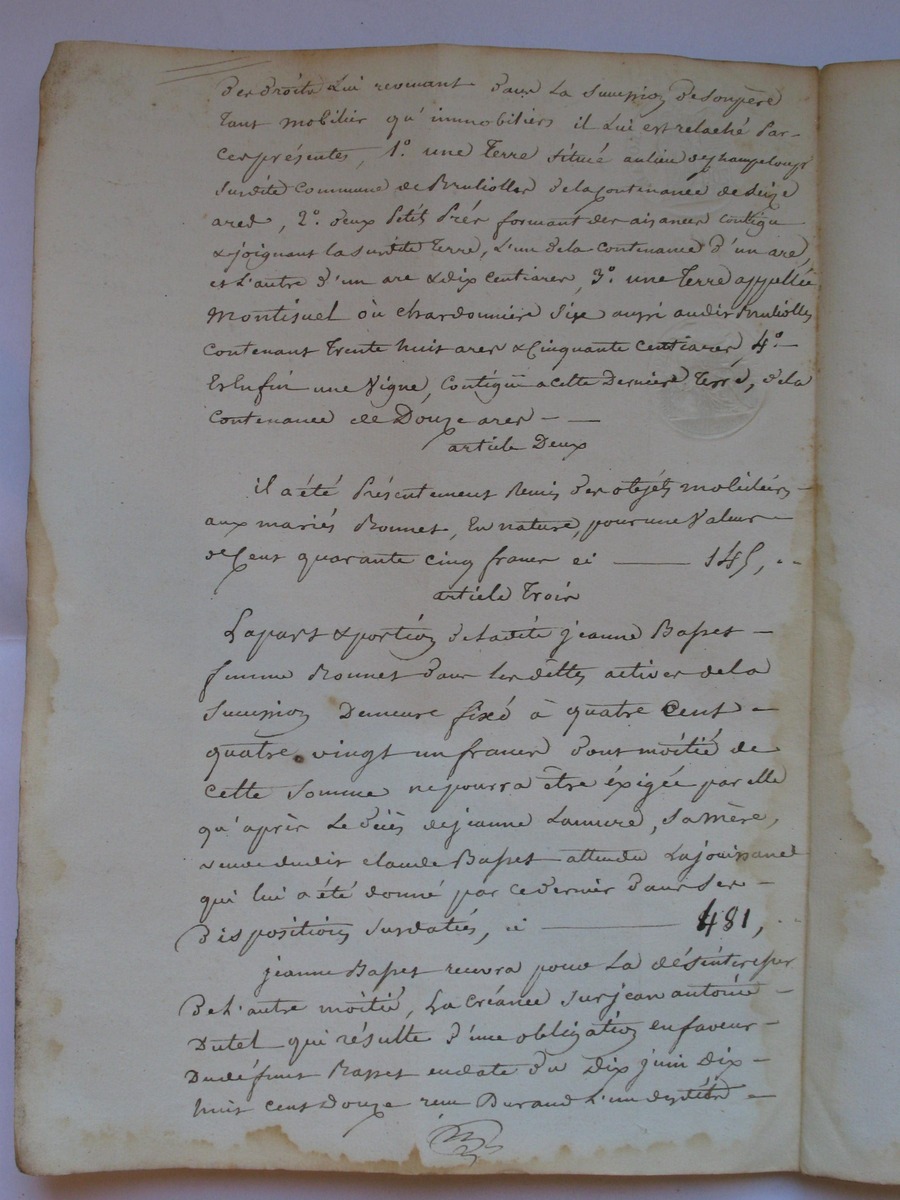 des droits lui revenant dans la succession de son père
tant mobilier qu'immobiliers il lui est relaché par
ces présentes, 1.° une terre situé au lieu de champeloup
susdite commune de Brullioles de la contenance de seize
ares, 2.° deux petits prés formant des aisances contigu
& joignant la susdite terre, l'un de la contenance d'un are,
et l'autre d'un are & dix centiares, 3.° une terre appellée
Montisuel où chardonnière sise aussi audit Brullioles
contenant trente huit ares & cinquante centiares, 4.°
Et Enfin une Vigne, contiguë a cette dernière terre, de la
contenance de Douze ares
article Deux
il a été présentement remis des objets mobiliers
aux mariés Bonnet, En nature, pour une Valeur
de Cent quarante cinq francs ci 145, ..
article Trois
La part & portion de ladite jeanne Basset
femme Bonnet dans les dettes actives de la
succession Demeure fixé à quatre cent
quatre vingt un francs dont moitié de
cette somme ne pourra être éxigée par elle
qu'après le décès de jeanne , sa mère,
veuve dudit claude Basset attendu la jouissance
qui lui a été donné par ce dernier dans ses
Dispositions susdatés, ci 481, ..
jeanne Basset recevra pour la désintéresser
De l'autre moitié, la créance sur jean antoine
Dutel qui résulte d'une obligation en faveur
Du défunt Basset en date du dix juin dix
huit cent douze reçu Durand l'un